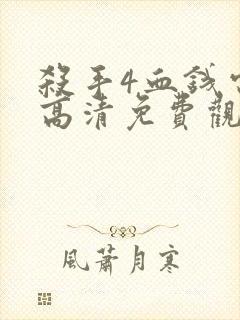 殺手4血錢
高清免費觀
風蕭月寒